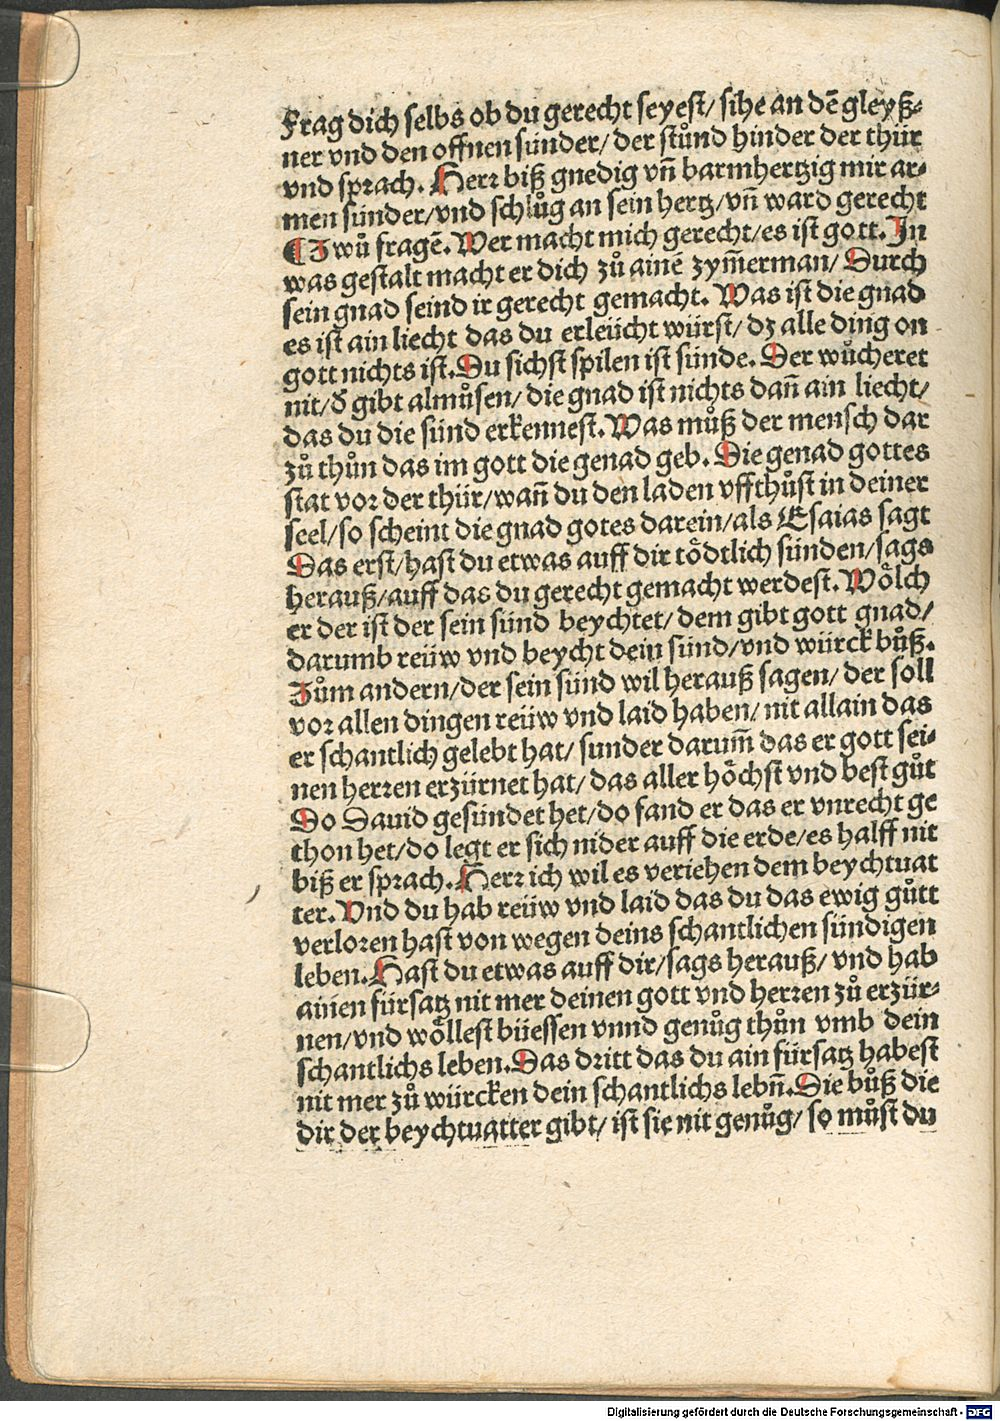 Frag dich selbs ob du gerecht seyest/ sihe an dē gleyß⸗
ner vnd den offnen sünder/ der stůnd hinder der thür
vnd sprach. Herr biß gnedig vn̄ barmhertzig mir ar⸗
men sünder/vnd schlůg an sein hertz/vn̄ ward gerecht
¶ Zwů fragē. Wer macht mich gerecht/es ist gott. In
was gestalt macht er dich zů ainē zym̄erman/ Durch
sein gnad seind ir gerecht gemacht. Was ist die gnad
es ist ain liecht das du erleücht würst/ dz alle ding on
gott nichts ist. Du sichst spilen ist sünde. Der wůcheret
nit/ď gibt almůsen/ die gnad ist nichts dan̄ ain liecht/
das du die sünd erkennest. Was můß der mensch dar
zů thůn das im gott die genad geb. Die genad gottes
stat vor der thür/wan̄ du den laden vffthůst in deiner
seel/so scheint die gnad gotes darein/als Esaias sagt
Das erst/hast du etwas auff dir tödtlich sünden/sags
herauß/auff das du gerecht gemacht werdest. Wölch
er der ist der sein sünd beychtet/ dem gibt gott gnad/
darumb reüw vnd beycht dein sünd/vnd würck bůß.
Zům andern/der sein sünd wil herauß sagen/ der soll
vor allen dingen reüw vnd laid haben/ nit allain das
er schantlich gelebt hat/ sunder darum̄ das er gott sei⸗
nen herren erzürnet hat/ das aller höchst vnd best gůt
Do Dauid gesündet het/do fand er das er vnrecht ge
thon het/do legt er sich nider auff die erde/es halff nit
biß er sprach. Herr ich wil es veriehen dem beychtuat
ter. Vnd du hab reüw vnd laid das du das ewig gůtt
verloren hast von wegen deins schantlichen sündigen
leben. Hast du etwas auff dir/sags herauß/ vnd hab
ainen fürsatz nit mer deinen gott vnd herren zů erzür⸗
nen/vnd wöllest büessen vnnd genůg thůn vmb dein
schantlichs leben. Das dritt das du ain fürsatz habest
nit mer zů würcken dein schantlichs lebn̄. Die bůß die
dir der beychtuatter gibt/ ist sie nit genůg/ so můst du
Digitalisierung gefördert durch die Deutsche Forschungsgemeinschaft - DFG